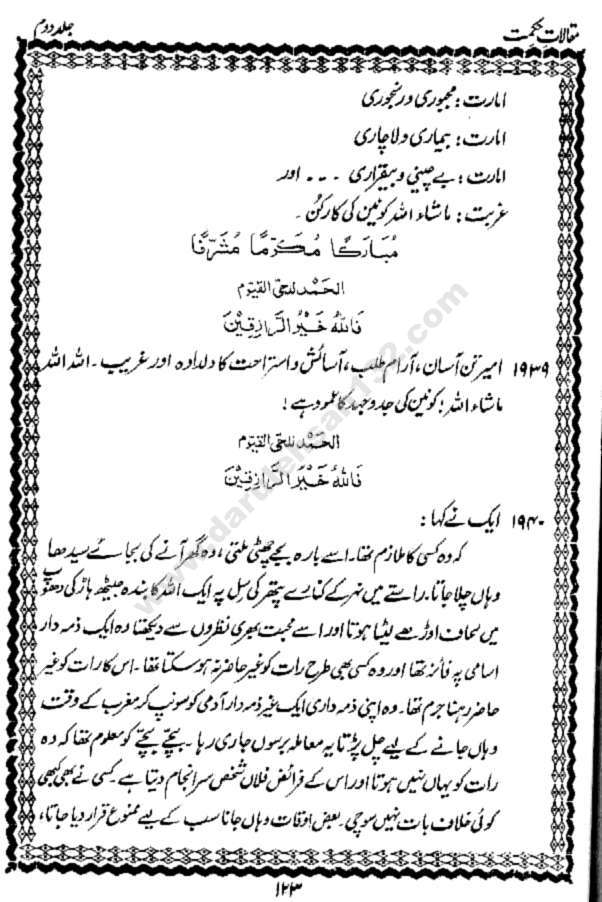 مقالات حکمت
جلد دوم
امارت : مجبوری و رنجوری
امارت : بیماری و لاچاری
امارت : بے چینی و بیقراری ۔ ۔ ۔ اور
غربت : ماشاء اللہ کونین کی کارکن ۔
مُبَارَكًا مُكَرَّمًا مُشَرَّفًا
الحَمْدُ للحَيِّ القَيُّوم
فَاللهُ خَيْرُ الرَّازِقِيْنَ
۱۹۳۹ امیر تن آسان ، آرام طلب ، آسائش و استراحت کا دلدادہ اور غریب ۔ اللہ اللہ
ماشاء اللہ ! کونین کی جدوجہد کا عمود ہے !
الحَمْدُ للحَيِّ القَيُّوم
فَاللهُ خَيْرُ الرَّازِقِيْنَ
۱۹۴۰ ایک نے کہا :
کہ وہ کسی کا ملازم تھا۔ اسے بارہ بجے چھٹی ملتی ، وہ گھر آنے کی بجائے سیدھا
وہاں چلا جاتا۔ راستے میں نہر کے کنارے پتھر کی سِل پہ ایک اللہ کا بندہ جیٹھ ہاڑ کی دھوپ
میں لحاف اوڑھے لیٹا ہوتا اور اسے محبت بھری نظروں سے دیکھتا وہ ایک ذمہ دار
اسامی پہ فائز تھا اور وہ کسی بھی طرح رات کو غیر حاضر نہ ہو سکتا تھا۔ اس کا رات کو غیر
حاضر رہنا جرم تھا۔ وہ اپنی ذمہ داری ایک غیر ذمہ دار آدمی کو سونپ کر مغرب کے وقت
وہاں جانے کے لیے چل پڑتا یہ معاملہ برسوں جاری رہا ۔ بچے بچے کو معلوم تھا کہ وہ
رات کو یہاں نہیں ہوتا اور اس کے فرائض فلاں شخص سرانجام دیتا ہے ۔ کسی نے بھی کبھی
کوئی خلاف بات نہیں سوچی ۔ بعض اوقات وہاں جانا سب کے لیے ممنوع قرار دیا جاتا ،
۱۲۳